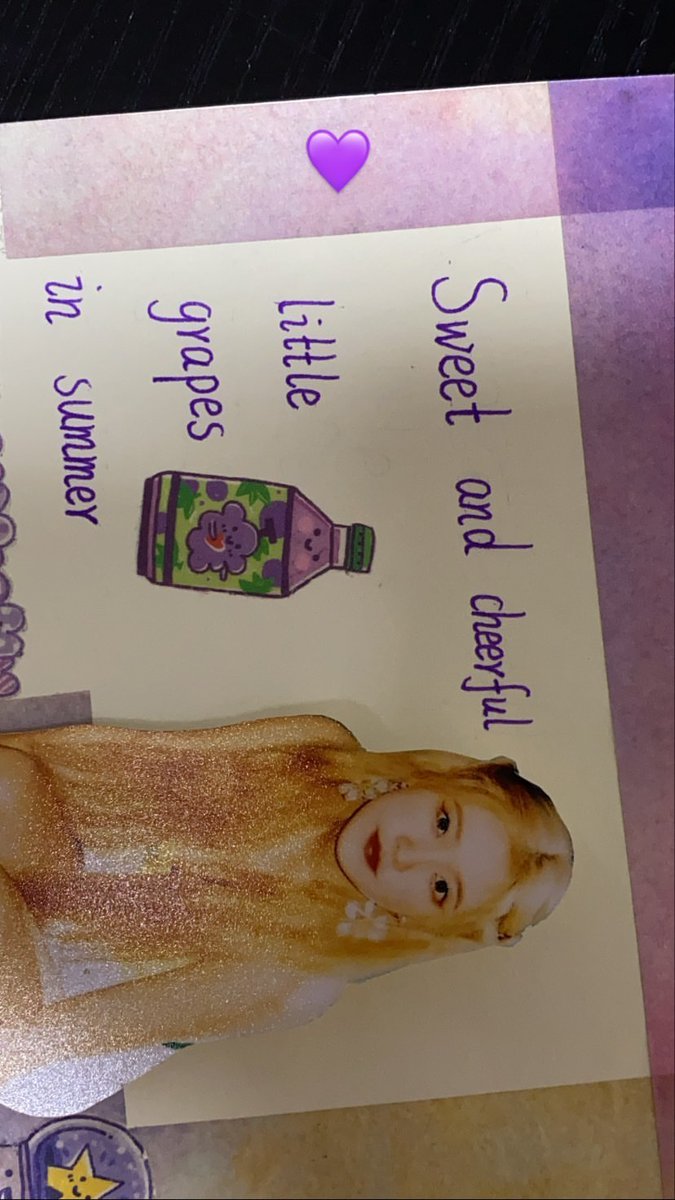 Sweet and cheerful
little
grapes
in summer